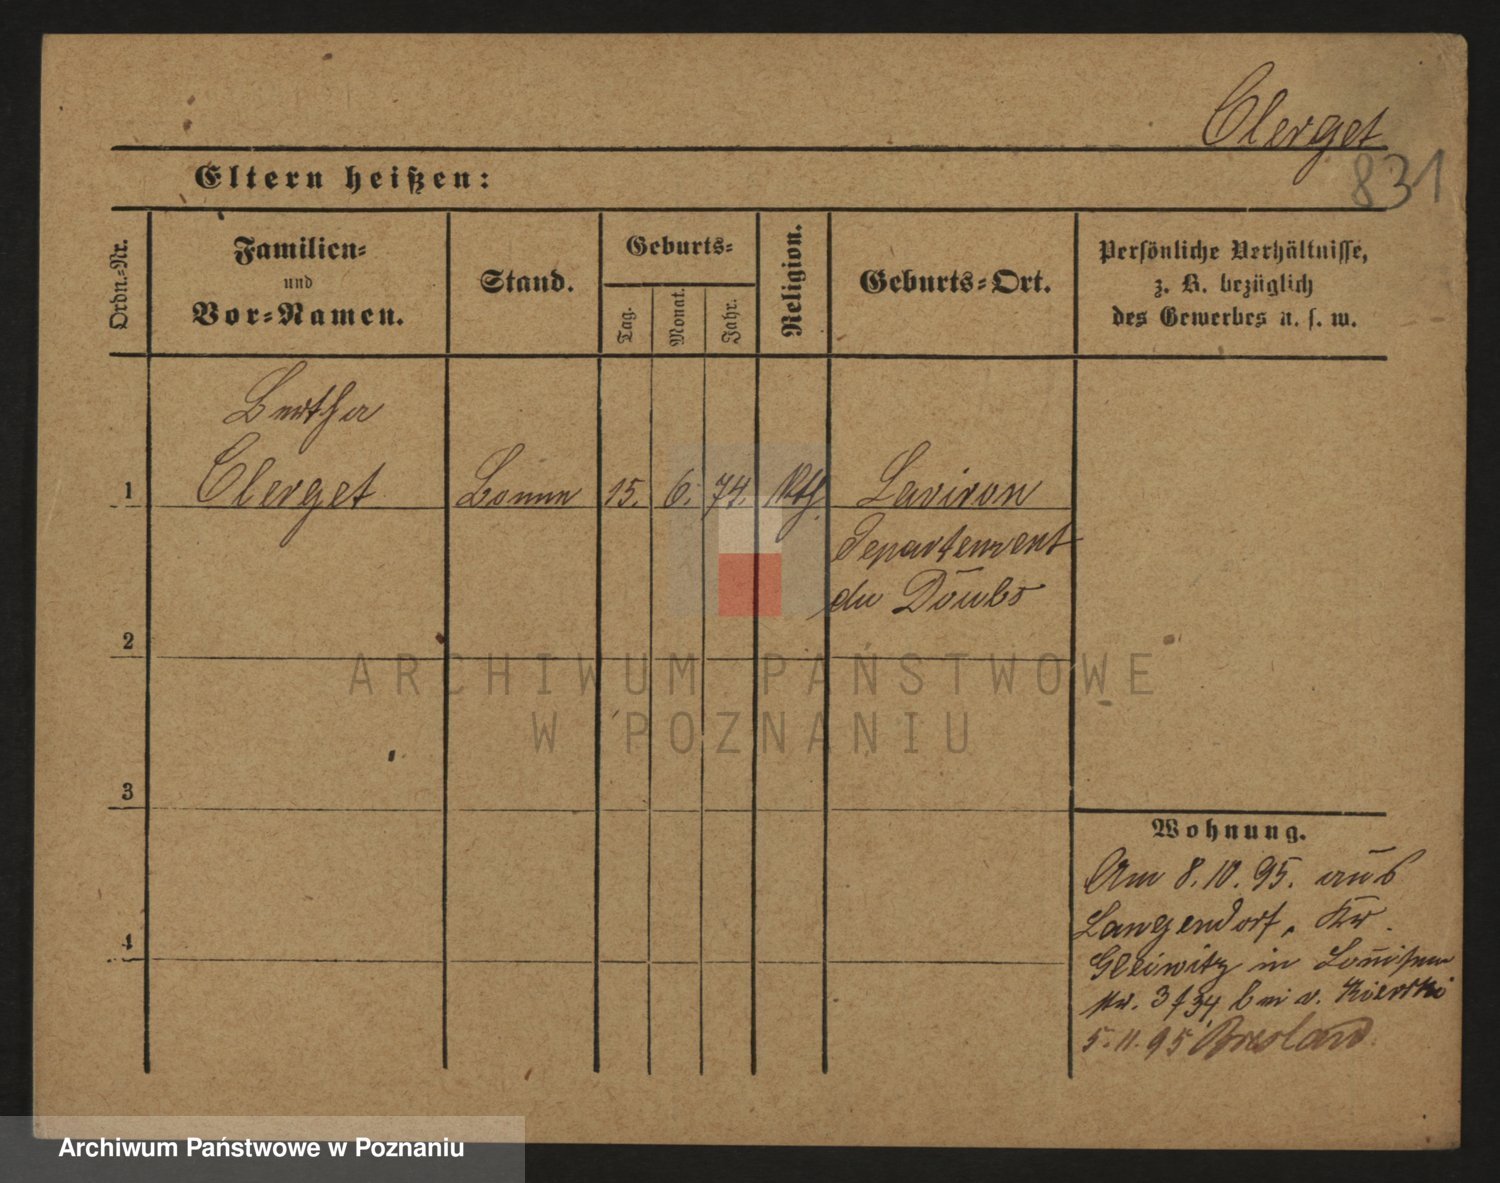 Clerget
831
Eltern heißen:
Ordn.-Nr.
Familien-
und
Vor-Namen.
Stand.
Geburts-
Tag.
Monat.
Jahr.
Religion.
Geburts-Ort.
Persönliche Verhältnisse,
z. B. bezüglich
des Gewerbes u. s. w.
Bertha
1 Clerget Bonne 15. 6. 74. Kth. Laviron
Departement
du Doubs
2
3
4
Wohnung.
Am 8.10.95. aus
Langendorf, Kr.
Gleiwitz in Louisen
str. 3 bei v. Kierski
5.11.95 Breslau
ARCHIWUM PAŃSTWOWE
W POZNANIU
Archiwum Państwowe w Poznaniu